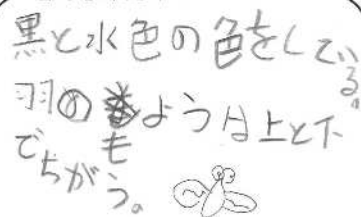 黒と水色の色をしている。
羽のもようは上と下
でちがう。